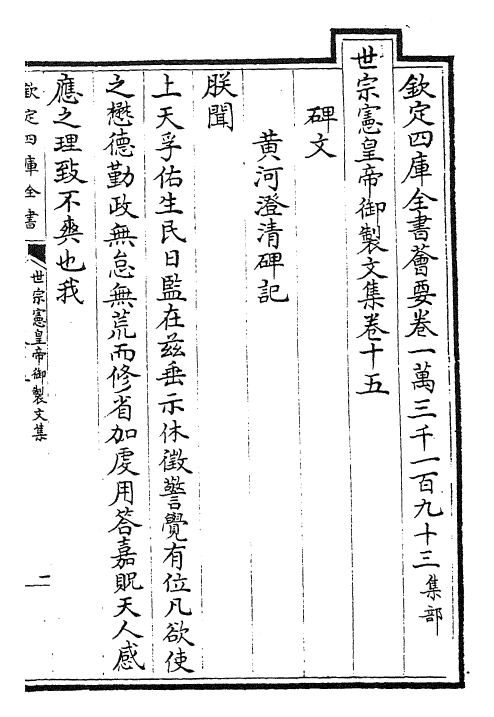 欽定四庫全書薈要卷一萬三千一百九十三集部
世宗憲皇帝御製文集卷十五
碑文
黃河澄清碑記
朕聞
上天孚佑生民日監在茲垂示休徵警覺有位凡欲使
之懋德勤政無怠無荒而修省加虔用答嘉貺天人感
應之理致不爽也我
欽定四庫全書
世宗憲皇帝御製文集